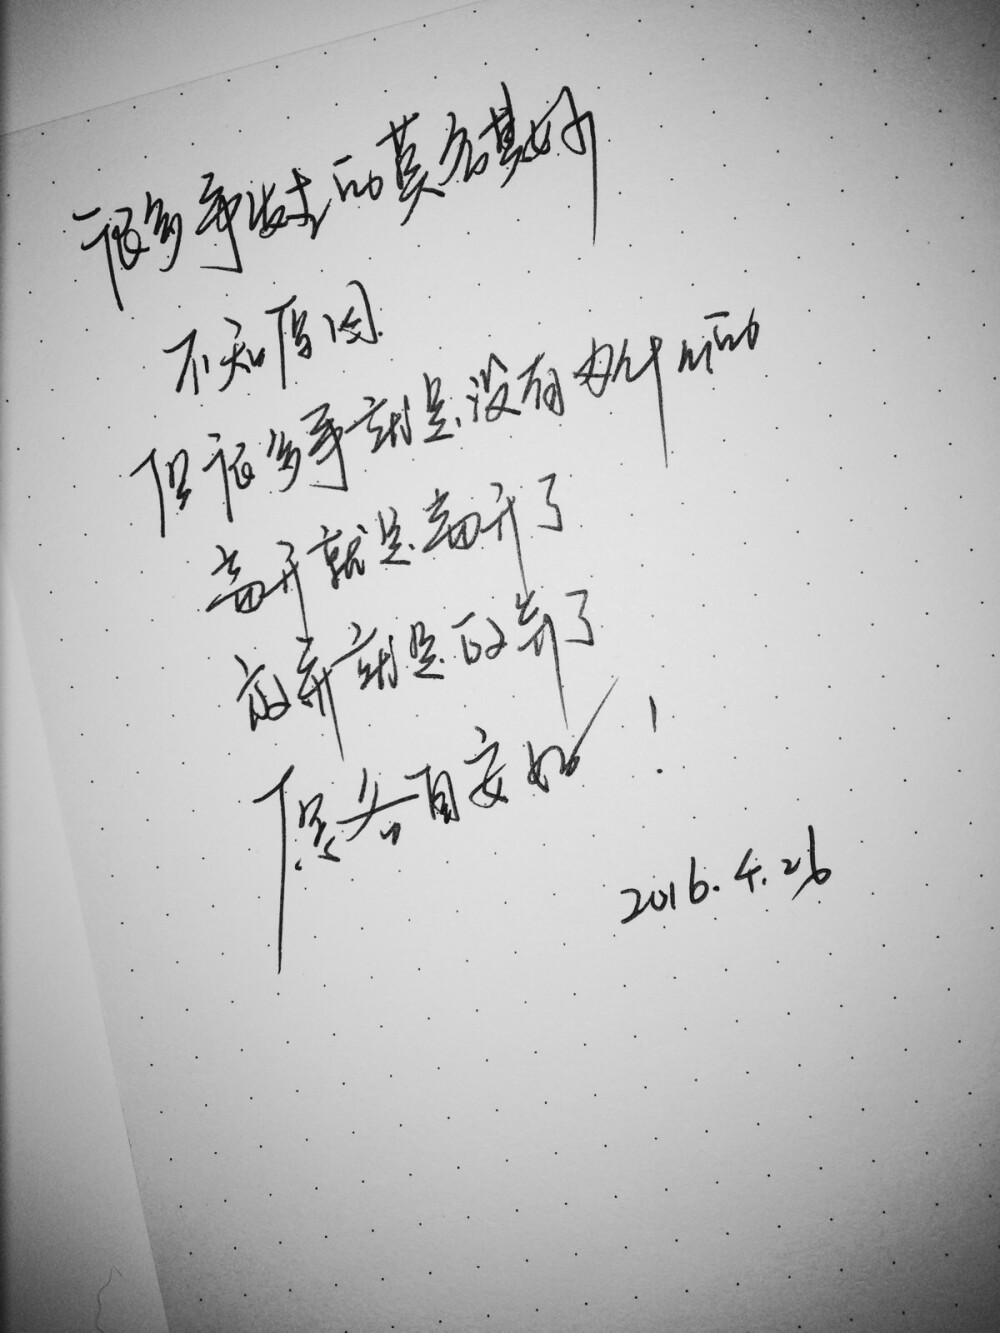 很多事发生的莫名其妙
不知原因
但很多事就是没有为什么的
离开就是离开了
放弃就是放弃了
愿各自安好!
2016.4.26